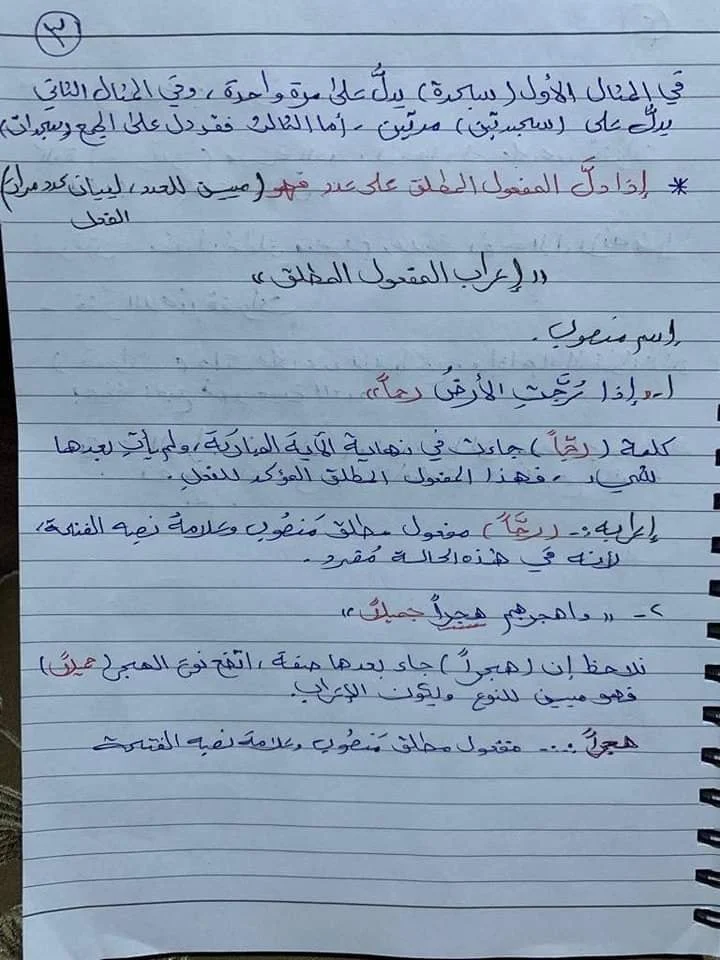 ٣
في المثال الأول (سجدة) يدلُّ على مرة واحدة، وفي المثال الثاني
يدلُّ على (سجدتين) مرتين - أما الثالث فقد دل على الجمع (سجدات)
* إذا دلَّ المفعول المطلق على عدد فهو (مبين للعدد، لبيان عدد مرات)
الفعل
"إعراب المفعول المطلق"
إسم منصوب.
١- "وإذا رُجَّتِ الأرضُ رجاً"
كلمة (رجّاً) جاءت في نهاية الآية المباركة، ولم يأتِ بعدها
شيء، فهذا المفعول المطلق المؤكد للفعل.
إعرابه:- (رجّاً) مفعول مطلق مَنصُوب وعلامةُ نصبه الفتحة،
لأنه في هذه الحالة مُفرد.
٢- "واهجرهم هجراً جميلاً"
نلاحظ إن (هجراً) جاء بعدها صفة، اتضح نوع الهجر (جميلاً)
فهو مبين للنوع ويكون الإعراب.
هجراً :- مفعول مطلق مَنصُوب وعلامة نصبه الفتحة